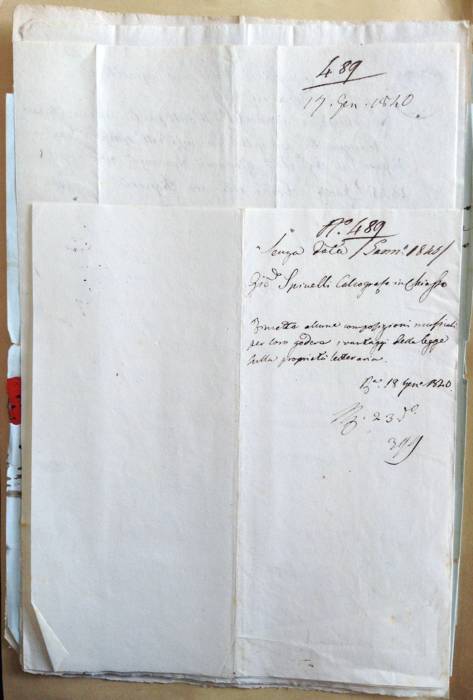 489
17. Gen. 1840
N.° 489
Senza data / Genn.° 1840 /
Spinelli Calcografo in Chiasso
Rimette alcune composizioni musicali
per loro godere i vantaggi della legge
sulla proprietà letteraria.
18 Gen.° 1840.
23 d.°
394